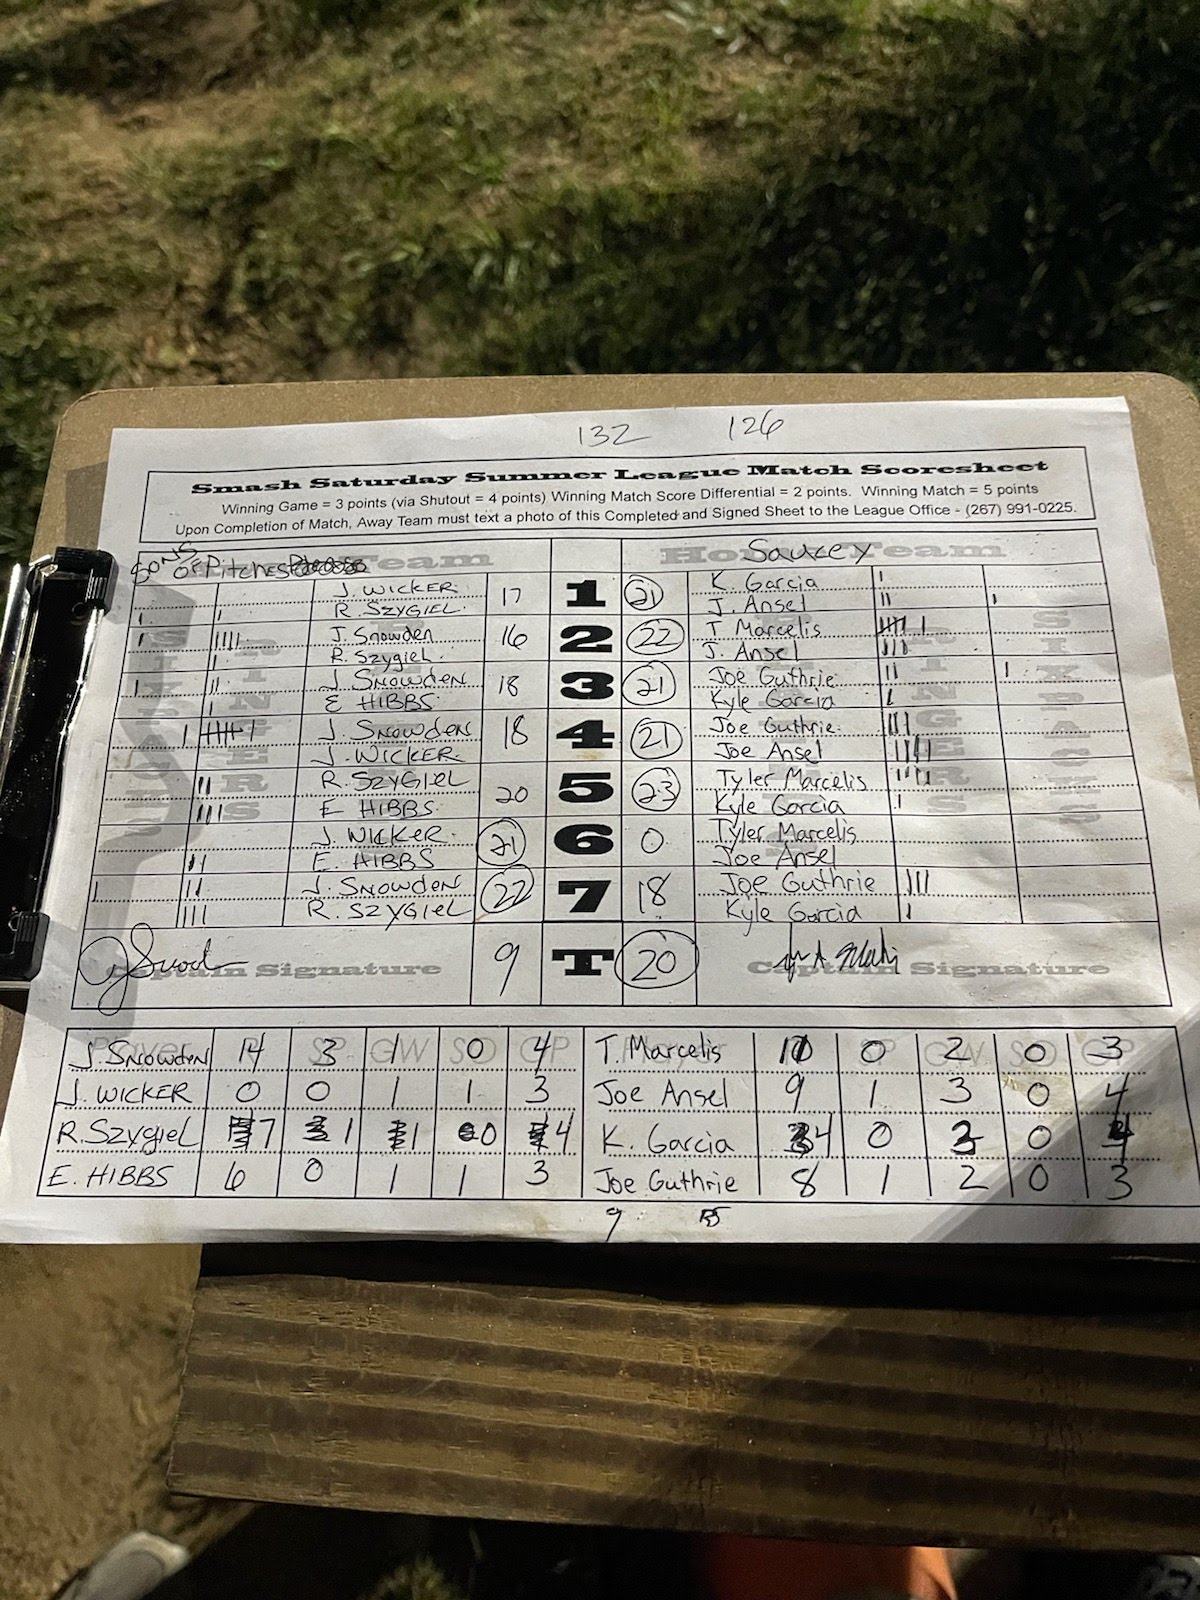 132 126
Smash Saturday Summer League Match Scoresheet
Winning Game = 3 points (via Shutout = 4 points) Winning Match Score Differential = 2 points. Winning Match = 5 points
Upon Completion of Match, Away Team must text a photo of this Completed and Signed Sheet to the League Office - (267) 991-0225.
SONS OF Pitches Team Home Team Saucey
J. WICKER 17 1 21 K. Garcia
R. SZYGIEL J. Ansel
J. Snowden 16 2 22 T Marcelis
R. Szygiel J. Ansel
J. SNOWDEN 18 3 21 Joe Guthrie
E HIBBS Kyle Garcia
J. SNOWDEN 18 4 21 Joe Guthrie
J. WICKER Joe Ansel
R. SZYGIEL 20 5 23 Tyler Marcelis
E HIBBS Kyle Garcia
J. WICKER 21 6 0 Tyler Marcelis
E. HIBBS Joe Ansel
J. SNOWDEN 22 7 18 Joe Guthrie
R. SZYGIEL Kyle Garcia
Captain Signature 9 T 20 Captain Signature
J. SNOWDEN 14 3 GW 0 4 T. Marcelis 10 0 2 0 3
J. WICKER 0 0 1 1 3 Joe Ansel 9 1 3 0 4
R. SZYGIEL 7 1 1 0 4 K. Garcia 4 0 3 0 4
E. HIBBS 6 0 1 1 3 Joe Guthrie 8 1 2 0 3
9